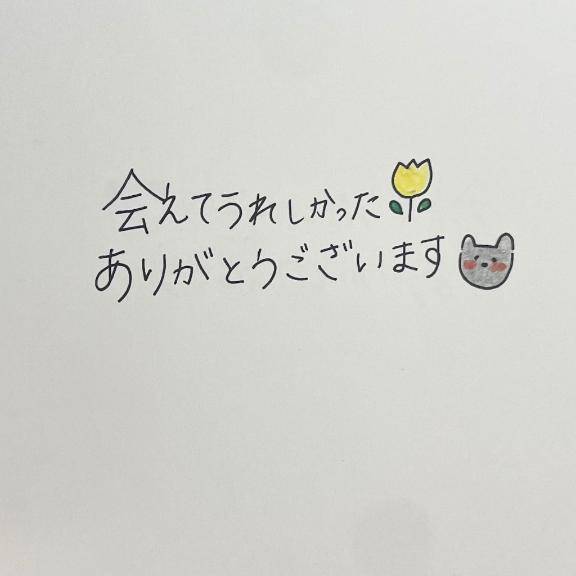 会えてうれしかった
ありがとうございます